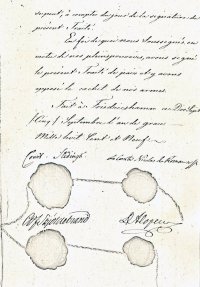 sepent, à compter du jour de la signature du
présent Traité.
En foi de quoi nous Soussignés, en
vertu de nos pleinspouvoirs, avons signé
le présent Traité de paix et y avons
apposé le cachet de nos armes.
Fait à Fredricshamn ce Dix Sept
(Cinq) Septembre l'an de grace
Mille huit Cent et Neuf.
Court Stedingk
le Comte Nicolas de Romanzoff
A F Skjöldebrand
D Alopeus